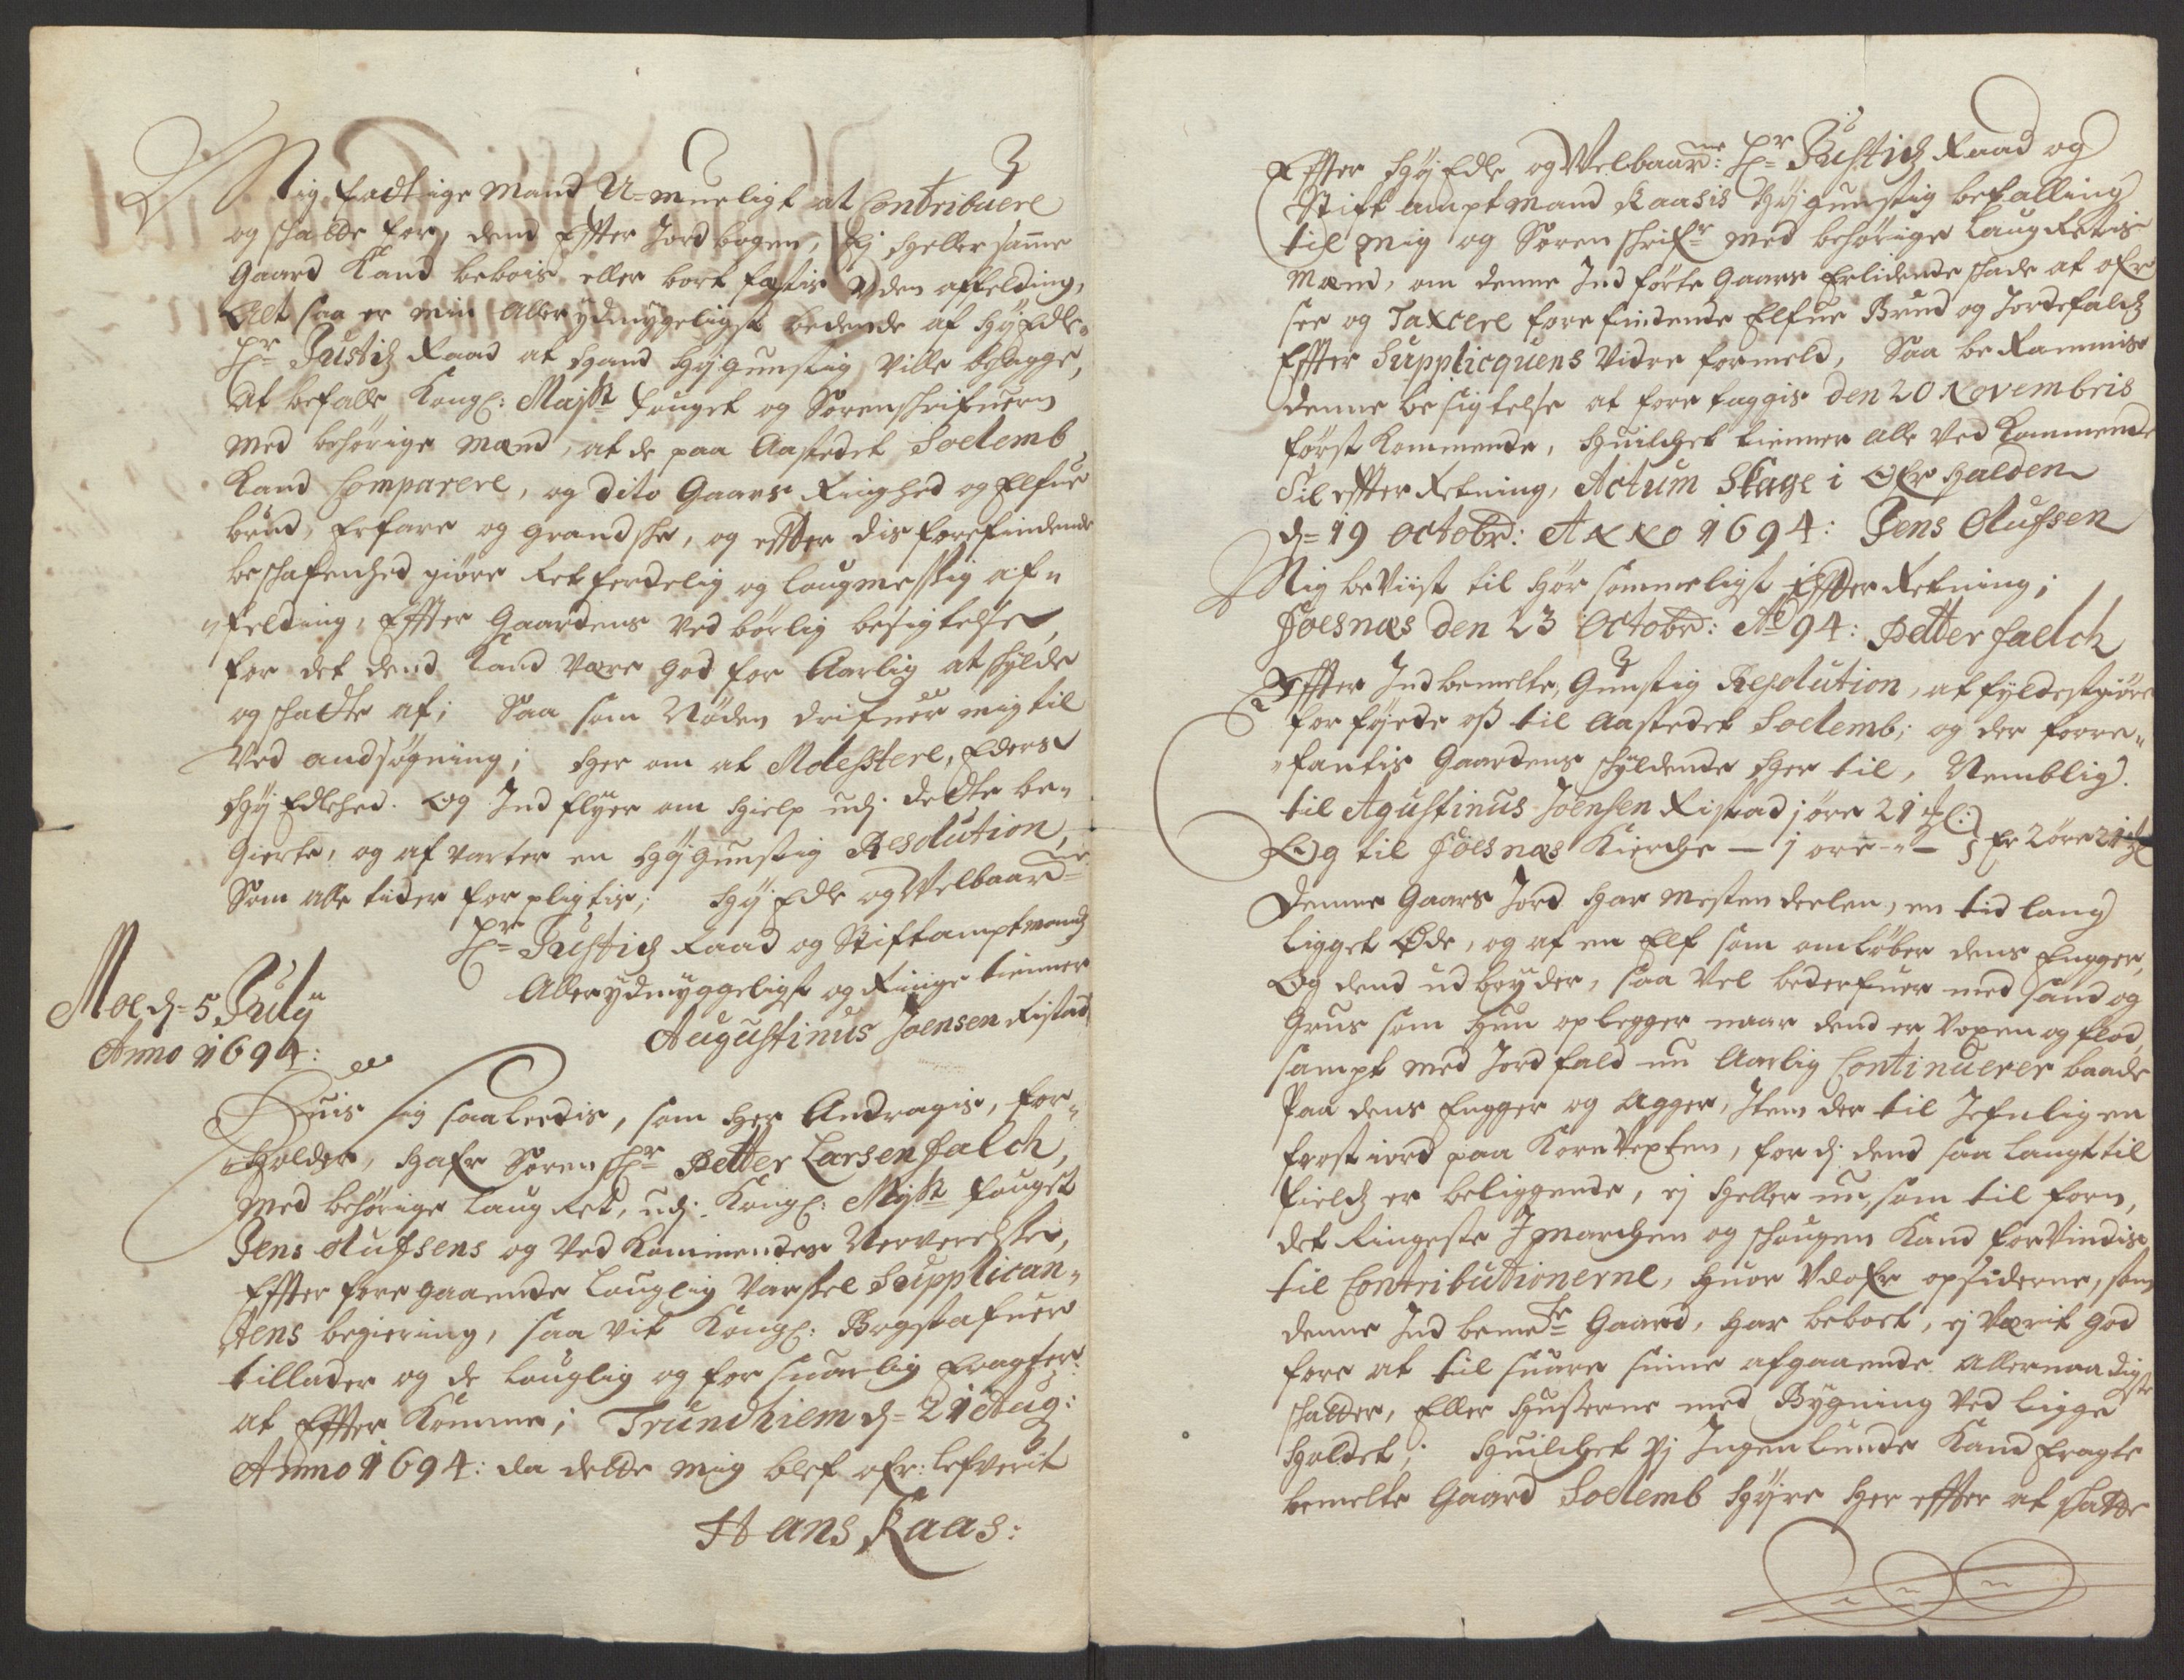 Mig fattige Mand U-mueligt at Contribuere
og schatte for, dend Effter Jordbogen, Ej heller samme
Gaard Kand bebois eller bort fæstis uden affelding,
Alt saa er min Allerydmygeligst bedende at HøyEdle
Hr Justitz Raad at hand Høygunstig Ville behage,
At befalle Kongl: Majst fouget og Sorenschrifueren
Med behørige Mænd, at de paa Aastedet Soelemb
Kand Comparere, og dito Gaars Ringhed og Elfue
brud, Erfare og grandske, og effter dis forefindende
beschafenhed giøre Retferdelig og laugmessig af-
felding, Effter Gaardens Ved børlig besigtelse,
for det dend Kand være god for Aarlig at schylde
og schatte af; Saa som Nøden drifuer mig til
Ved andsøgning; her om at Molestere, Eders
HøyEdlehed. Og Ind flyer om hielp udj dette be-
gierte, og af varter en Høygunstig Resolution,
Som alle tider forpligtis; HøyEdle og Velbaarne
Hr Justitz Raad og Stiftamptmands
Allerydmyggeligst og Ringe tienner
Augustinus Joensen Ristad
Moe d= 5 July
Anno 1694:
Huis sig saaleedis, som her Andragis, for-
holder, hafr Sorenschr Petter Larsen Falch,
Med behørige Laug Ret, udj Kongl: Mayst fougets
Jens Olufsens og Ved Kommendes Nerverelse,
Effter foregaaende Lauglig Varsel Supplican-
tens begiering, saa vit Kongl: Bogstafuer
tillader og de lauglig og forsuarlig Eragter
at Effter Komme; Trundhiem d= 21 Aug:
Anno 1694: da dette mig blef ofr: lefverit
Hans Kaas:
Effter HøyEdle og Velbaarne: Hr Justitz Raad og
Stiftamptmand Kaasis Høygunstig befalling
til mig og Sorenschrifr med behørige Laug Rettis
Mænd, om denne Ind førte Gaars Erlidende schade at ofr
see og Taxcere fore findende Elfue Brud og Jordefald
Effter Supplicquens Vidre formeld, Saa be Rammis
denne besigtelse at fore taggis den 20 Novembris
først Kommende, Huilchet tienner alle Ved Kommende
Til effter Retning, Actum Skage i Ofr Halden
d= 19 Octobr: Anno 1694: Jens Olufsen
Mig beviist til hør sommeligst Effter Retning;
Foesnæs den 23 Octobr: Ao 94: Petter Falch
Effter Indbemelte, Gunstig Resolution, at fyldestgiøre
for føyede oss til Aastedet Soelemb; og der forre-
fantis Gaardens schyldende her til, Nemblig.
til Agustinus Joensen Ristad j øre 21 ₰
Og til Foesnæs Kierche — 1 øre — Er 2 øre 21 ₰
Denne Gaars Jord har Mesten deelen, en tid lang
Ligget Øde, og af en Elf som omløber dens Engger,
Og dend udbryder, saa Vel bederfuer med sand og
Grus som hun oplegger naar dend er Voxen og flod,
sampt med Jordfald nu Aarlig Continuerer baade
Paa dens Engger og Agger, Item der til Jefnlig en
frost jord paa Korn Vexten, for dj dend saa langt til
fields er beliggende, ej heller nu, som til forn,
det Ringeste I Marchen og schougen Kand forvindis
til Contributionerne, huor Udofr opsiderne, som
denne Ind bemelte Gaard, har beboet, ej Værit god
fore at til suare sinne afgaaende Allernaadigste
schatter, Eller Husserne med Bygning Ved Ligge
holdet; Huilchet Vj Ingenlunde Kand Eragte
bemelte Gaard Soelemb høyre her effter at schatte